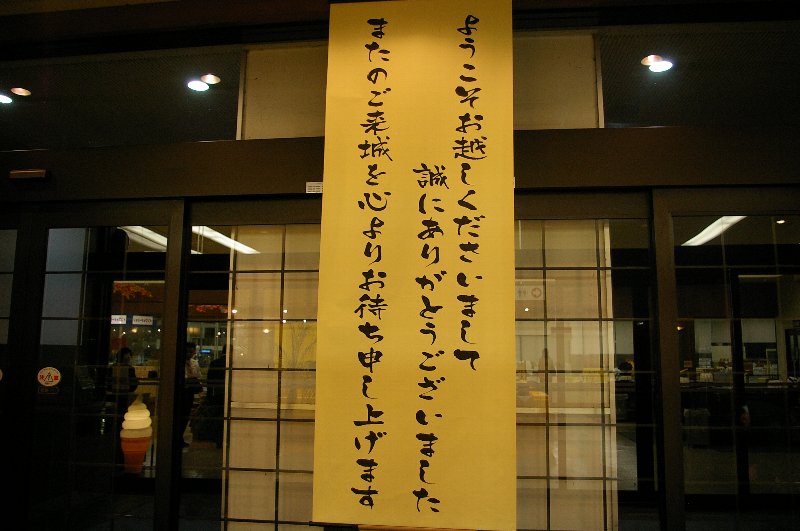 ようこそお越しくださいまして
誠にありがとうございました
またのご来城を心よりお待ち申し上げます